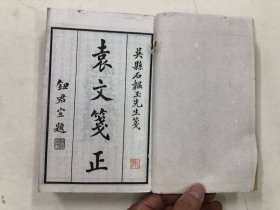 吳縣石韞玉先生箋
袁文箋正
鈕君宜題